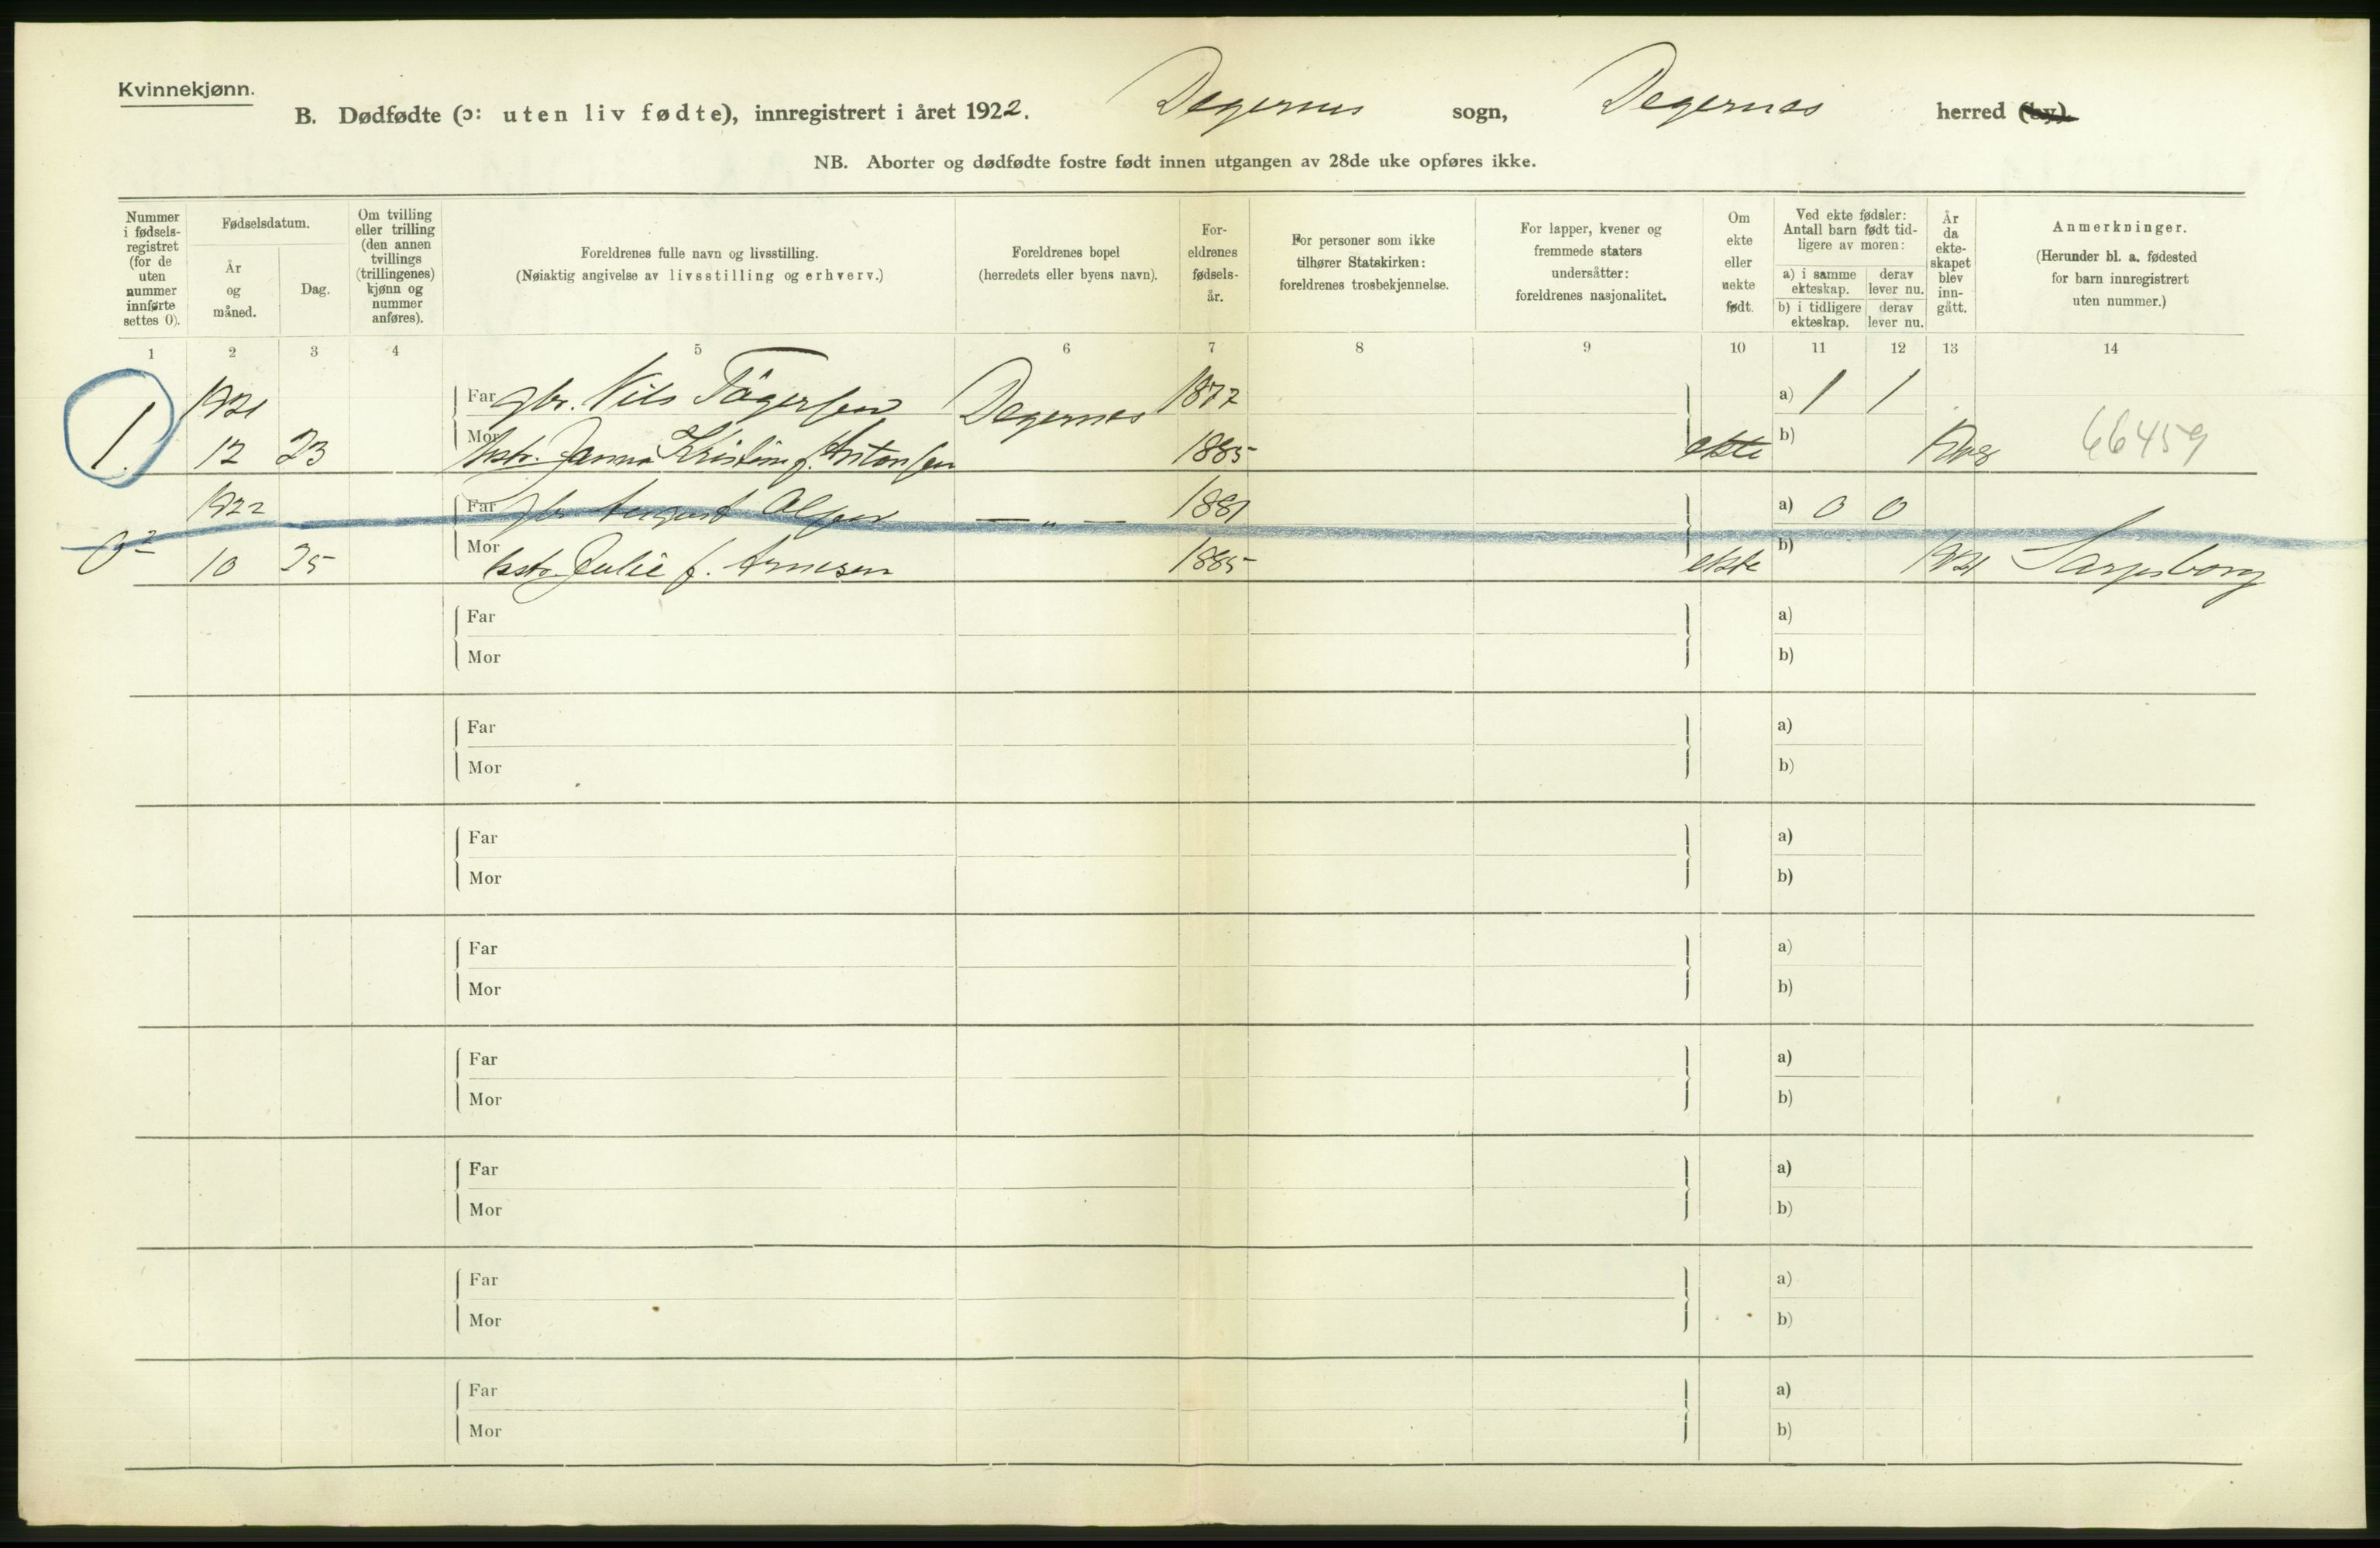 Kvinnekjønn.
B. Dødfødte (ɔ: uten liv fødte), innregistrert i året 1922. Degernes sogn, Degernes herred (by).
NB. Aborter og dødfødte fostre født innen utgangen av 28de uke opføres ikke.
Nummer i fødsels-registret (for de uten nummer innførte settes 0).
Fødselsdatum.
År og måned.
Dag.
Om tvilling eller trilling (den annen tvillings (trillingenes) kjønn og nummer anføres).
Foreldrenes fulle navn og livsstilling.
(Nøiaktig angivelse av livsstilling og erhverv.)
Foreldrenes bopel
(herredets eller byens navn).
For-eldrenes fødsels-år.
For personer som ikke tilhører Statskirken: foreldrenes trosbekjennelse.
For lapper, kvener og fremmede staters undersåtter: foreldrenes nasjonalitet.
Om ekte eller uekte født.
Ved ekte fødsler: Antall barn født tid-ligere av moren:
a) i samme ekteskap. derav lever nu.
b) i tidligere ekteskap. derav lever nu.
År da ekte-skapet blev inn-gått.
Anmerkninger.
(Herunder bl. a. fødested for barn innregistrert uten nummer.)
1 2 3 4 5 6 7 8 9 10 11 12 13 14
1921 Far gbr. Nils Tågersen Degernes 1877 a) 1 1
1. 12 23 Mor hstr. Janna Kristine f. Antonsen 1885 ekte b) 66459
1922 Far gbr August Olsen — „ — 1881 a) 0 0
10 25 Mor hstr. Julie f. Arnesen 1885 ekte b) 1921 Sarpsborg
Far a)
Mor b)
Far a)
Mor b)
Far a)
Mor b)
Far a)
Mor b)
Far a)
Mor b)
Far a)
Mor b)
Far a)
Mor b)
Far a)
Mor b)